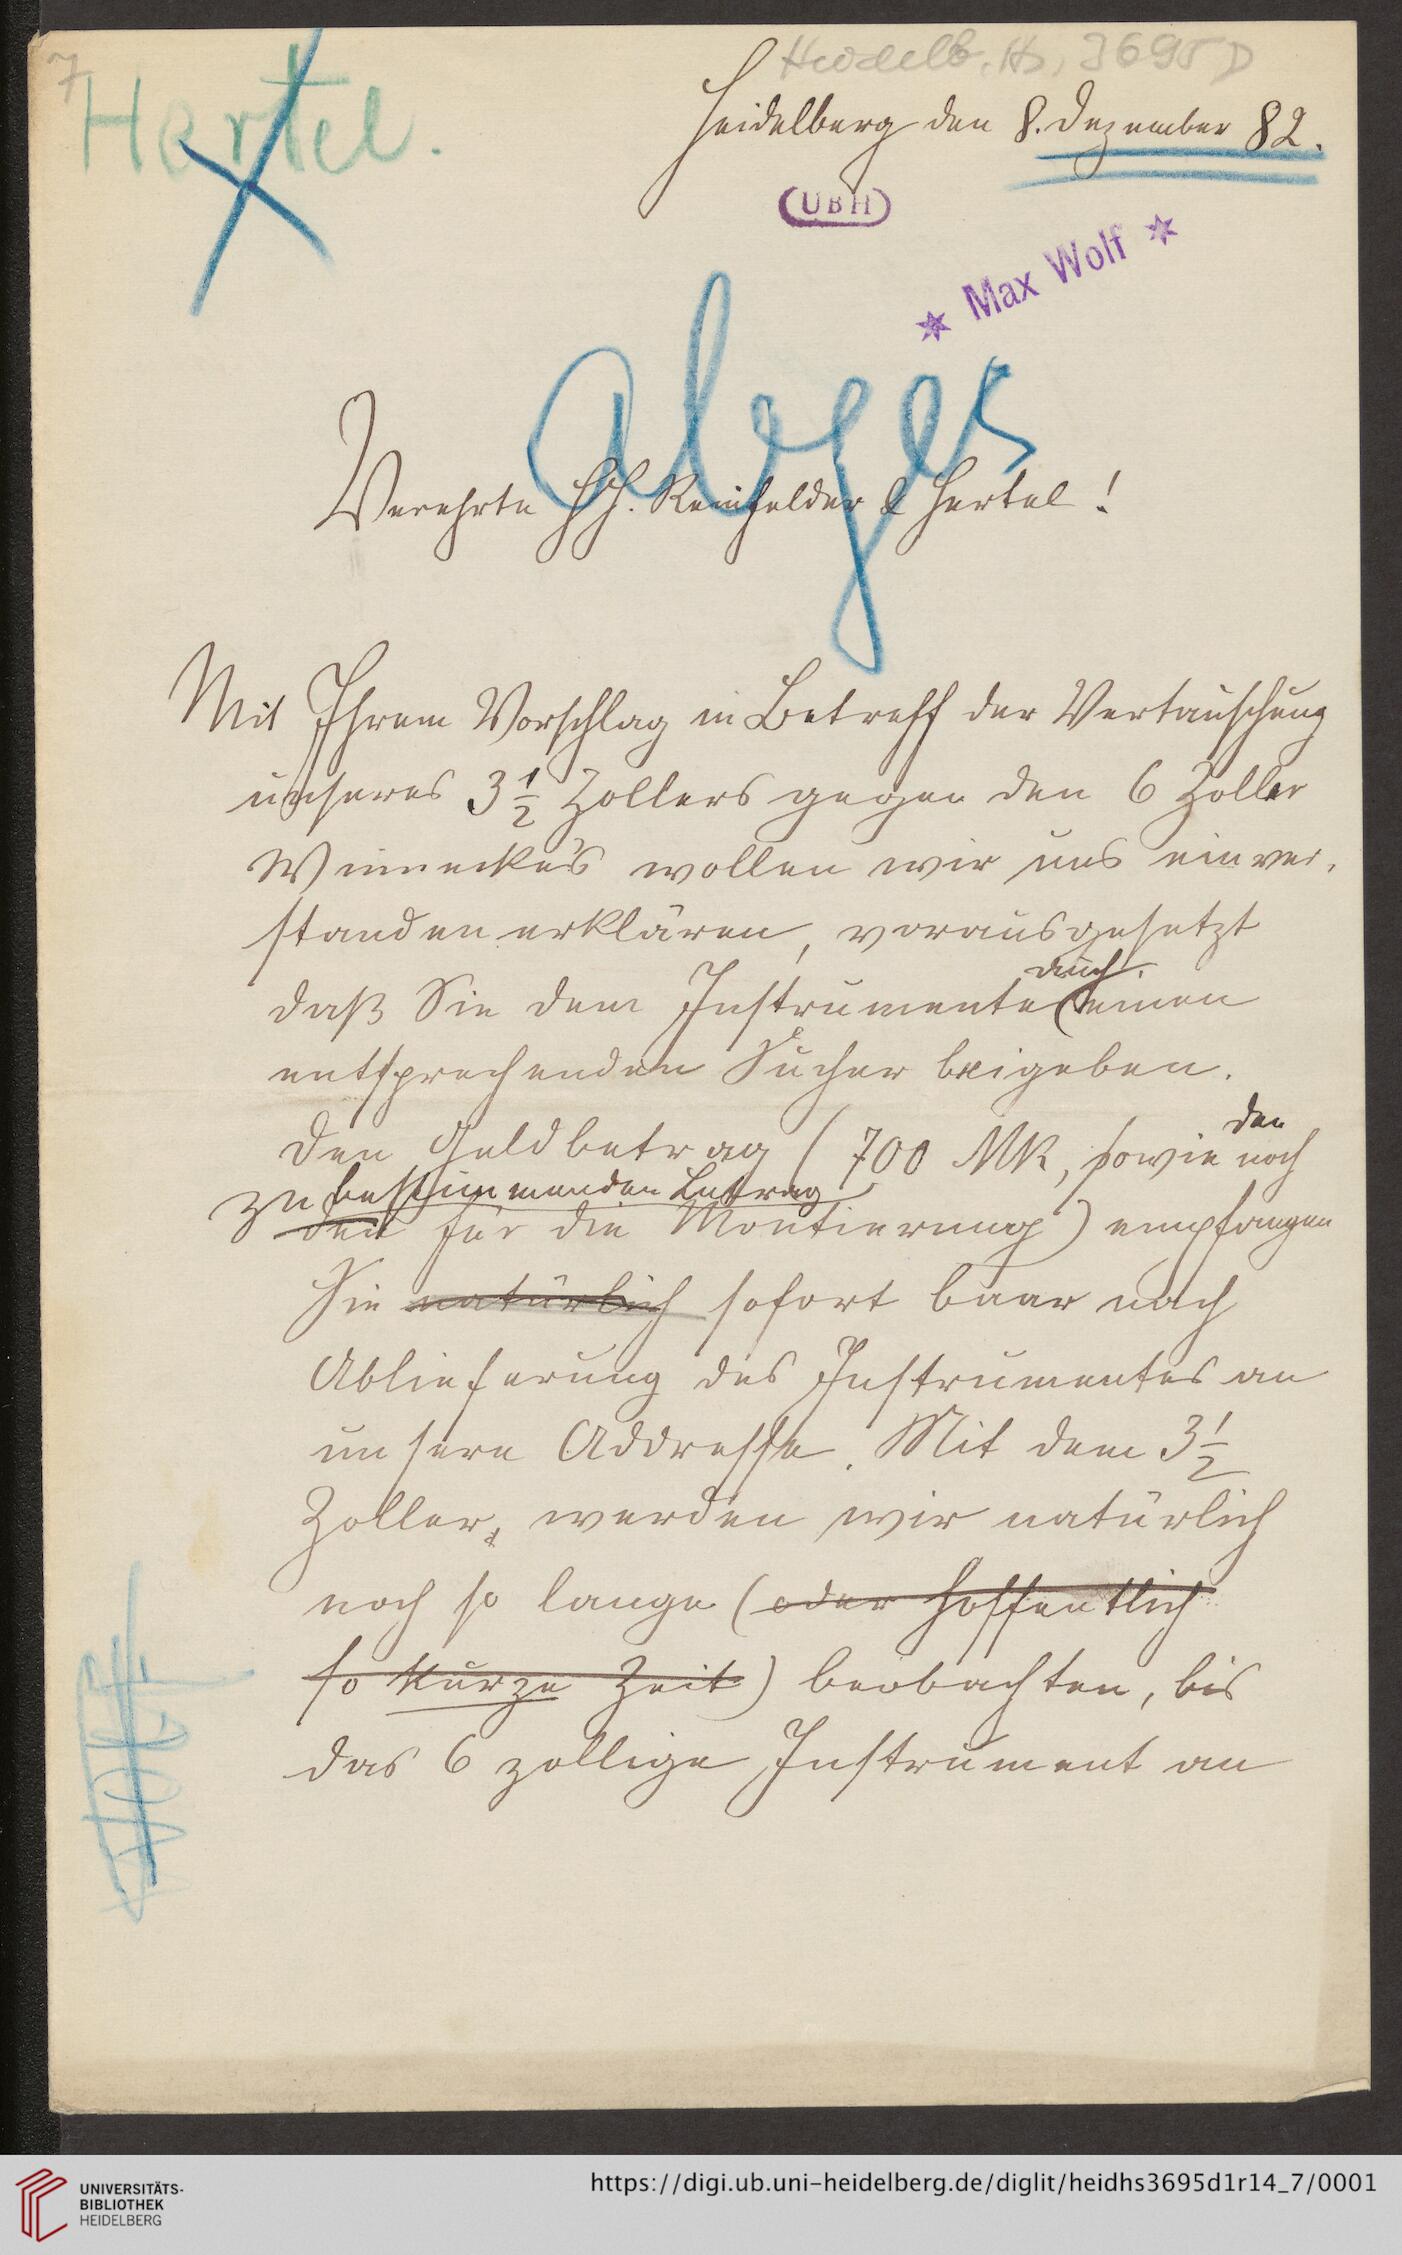 7
Heidelb. Hs. 3695 D
Hertel.
Heidelberg den 8. Dezember 82.
UBH
* Max Wolf *
abges
Verehrte HH. Reinfelder & Hertel!
Mit Ihrem Vorschlag in Betreff der Vertauschung
unseres 3 1/2 Zollers gegen den 6 Zoller
Winnecke's wollen wir uns einver-
standen erklären, vorausgesetzt
auch
daß Sie dem Instrumente einen
entsprechenden Sucher beigeben.
den
Den Geldbetrag (700 MK, sowie noch
zu bestimmenden Betrag
den für die Montierung) empfangen
Sie natürlich sofort baar nach
Ablieferung des Instrumentes an
unsere Addresse. Mit dem 3 1/2
Zoller, werden wir natürlich
noch so lange (oder hoffentlich
so kurze Zeit) beobachten, bis
das 6 zollige Instrument an
UNIVERSITÄTS-
BIBLIOTHEK
HEIDELBERG
https://digi.ub.uni-heidelberg.de/diglit/heidhs3695d1r14_7/0001